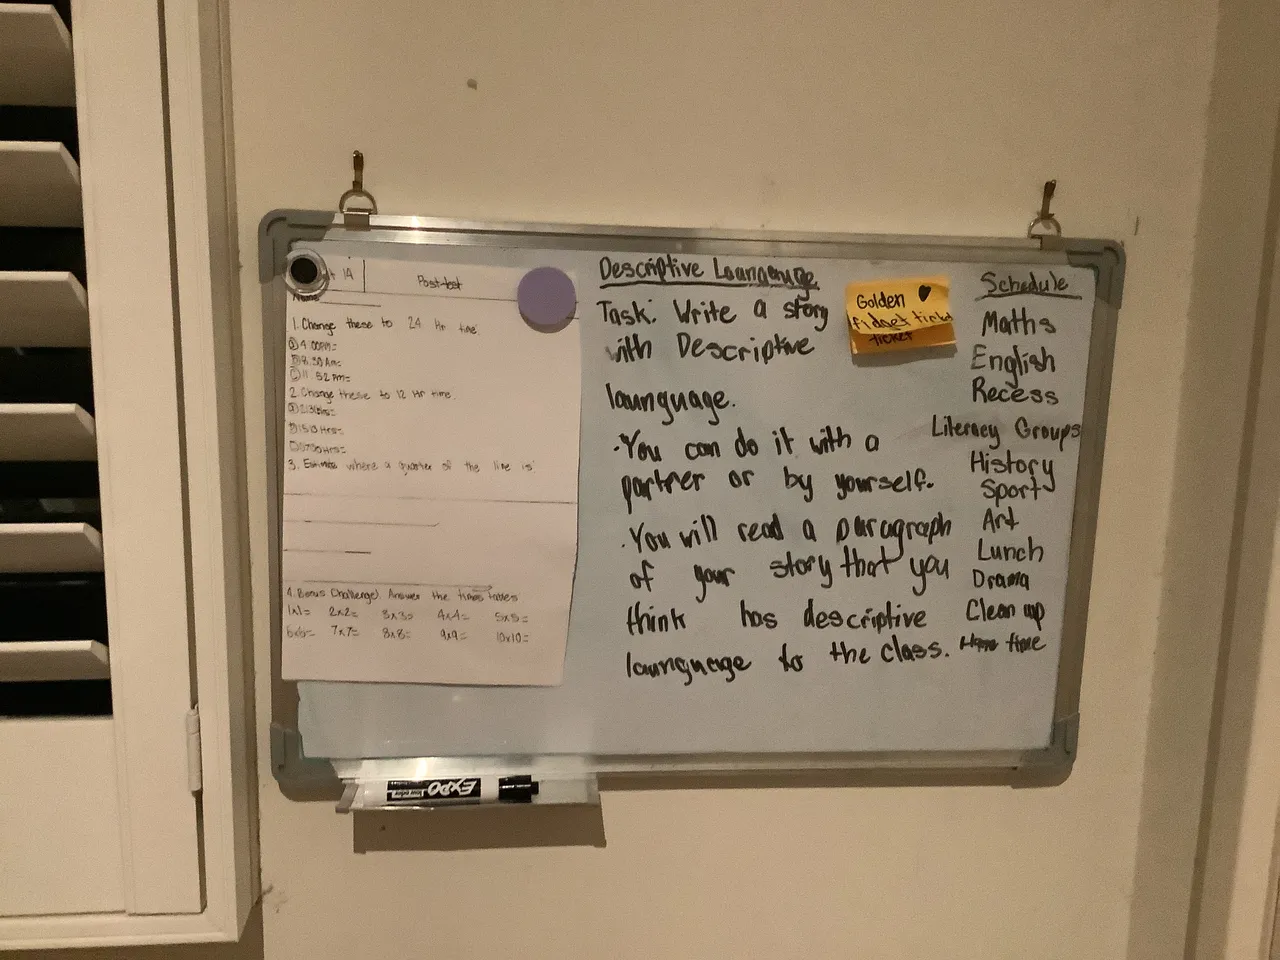 1A
Post-test
Name
1. Change these to 24 Hr time.
A 4:00PM=
B 8:30Am=
C 11:52Pm=
2. Change these to 12 Hr time.
3. Estimate where a quarter of the line is
4. Bonus Challenge! Answer the times tables
1x1= 2x2= 3x3= 4x4= 5x5=
6x6= 7x7= 8x8= 9x9= 10x10=
Descriptive Launguage
Task: Write a story
with Descriptive
launguage.
·You can do it with a
partner or by yourself.
·You will read a paragraph
of your story that you
think has descriptive
launguage to the class.
Golden
fidget ticket
ticket
Schedule
Maths
English
Recess
Literacy Groups
History
Sport
Art
Lunch
Drama
Clean up
Home time
EXPO